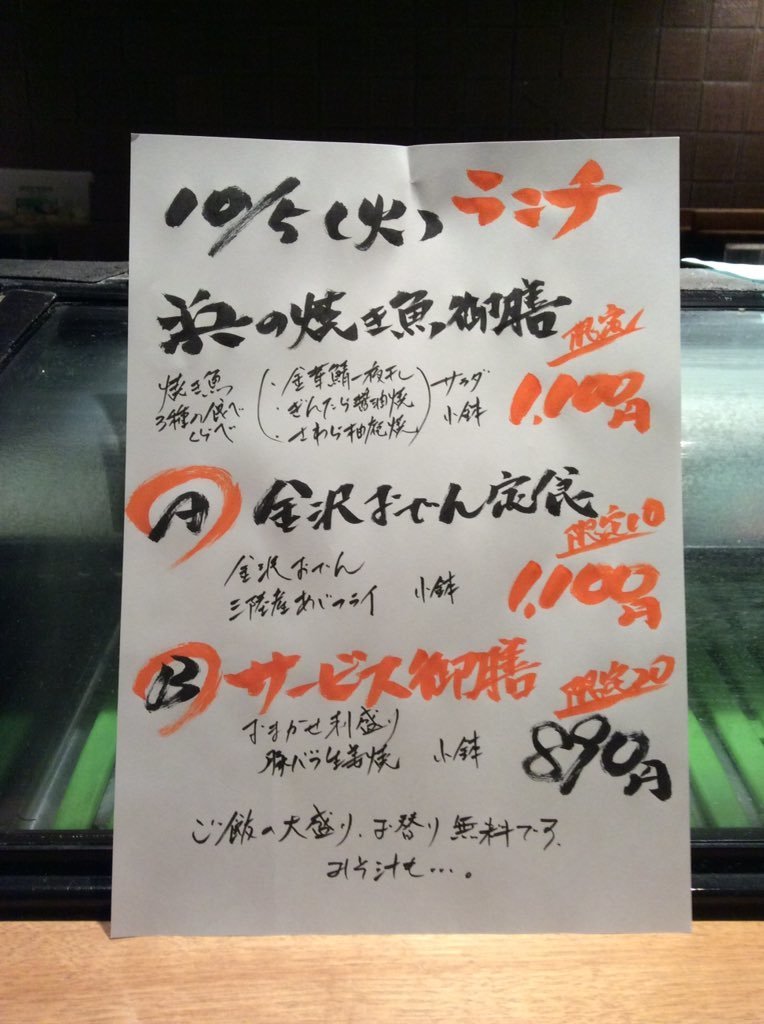 10/5(火) ランチ
浜の焼き魚御膳 限定
焼き魚 3種の食べくらべ
・金華鯖一夜干し
・ぎんだら醤油焼
・さわら柚庵焼
サラダ
小鉢
1,100円
A 金沢おでん定食 限定10
金沢おでん
三陸産あじフライ 小鉢
1,100円
B サービス御膳 限定20
おまかせ刺盛り
豚バラ生姜焼 小鉢
890円
ご飯の大盛り、お替り無料です、
みそ汁も…。